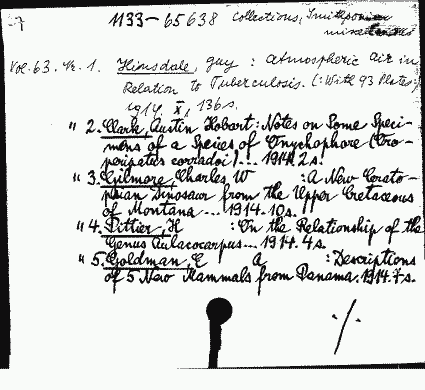 1133-65638 Collections, Smithsonian
miscellaneous
Vol. 63. Nr. 1. Hinsdale, Guy : Atmospheric air in
Relation to Tuberculosis. (:With 93 Plates:)
1914. X, 136 s.
" 2. Clark, Austin Hobart: Notes on Some Speci-
mens of a Species of Onychophore (Oro-
peripatus corradoi)... 1914. 2 s.
" 3. Gilmore, Charles W : A New Cerato-
psian Dinosaur from the Upper Cretaceous
of Montana ... 1914. 10 s.
" 4. Pittier, H : On the Relationship of the
Genus Aulacocarpus... 1914. 4 s.
" 5. Goldman, E A : Descriptions
of 5 New Mammals from Panama. 1914. 7 s.
./.